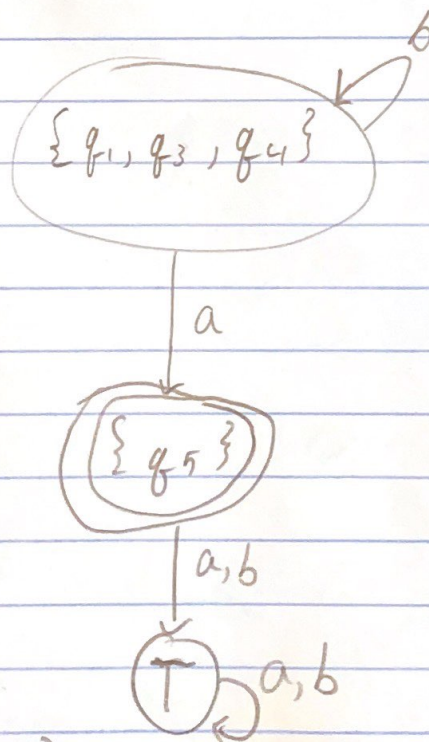 b
{ q1, q3, q4 }
a
{ q5 }
a,b
T a,b